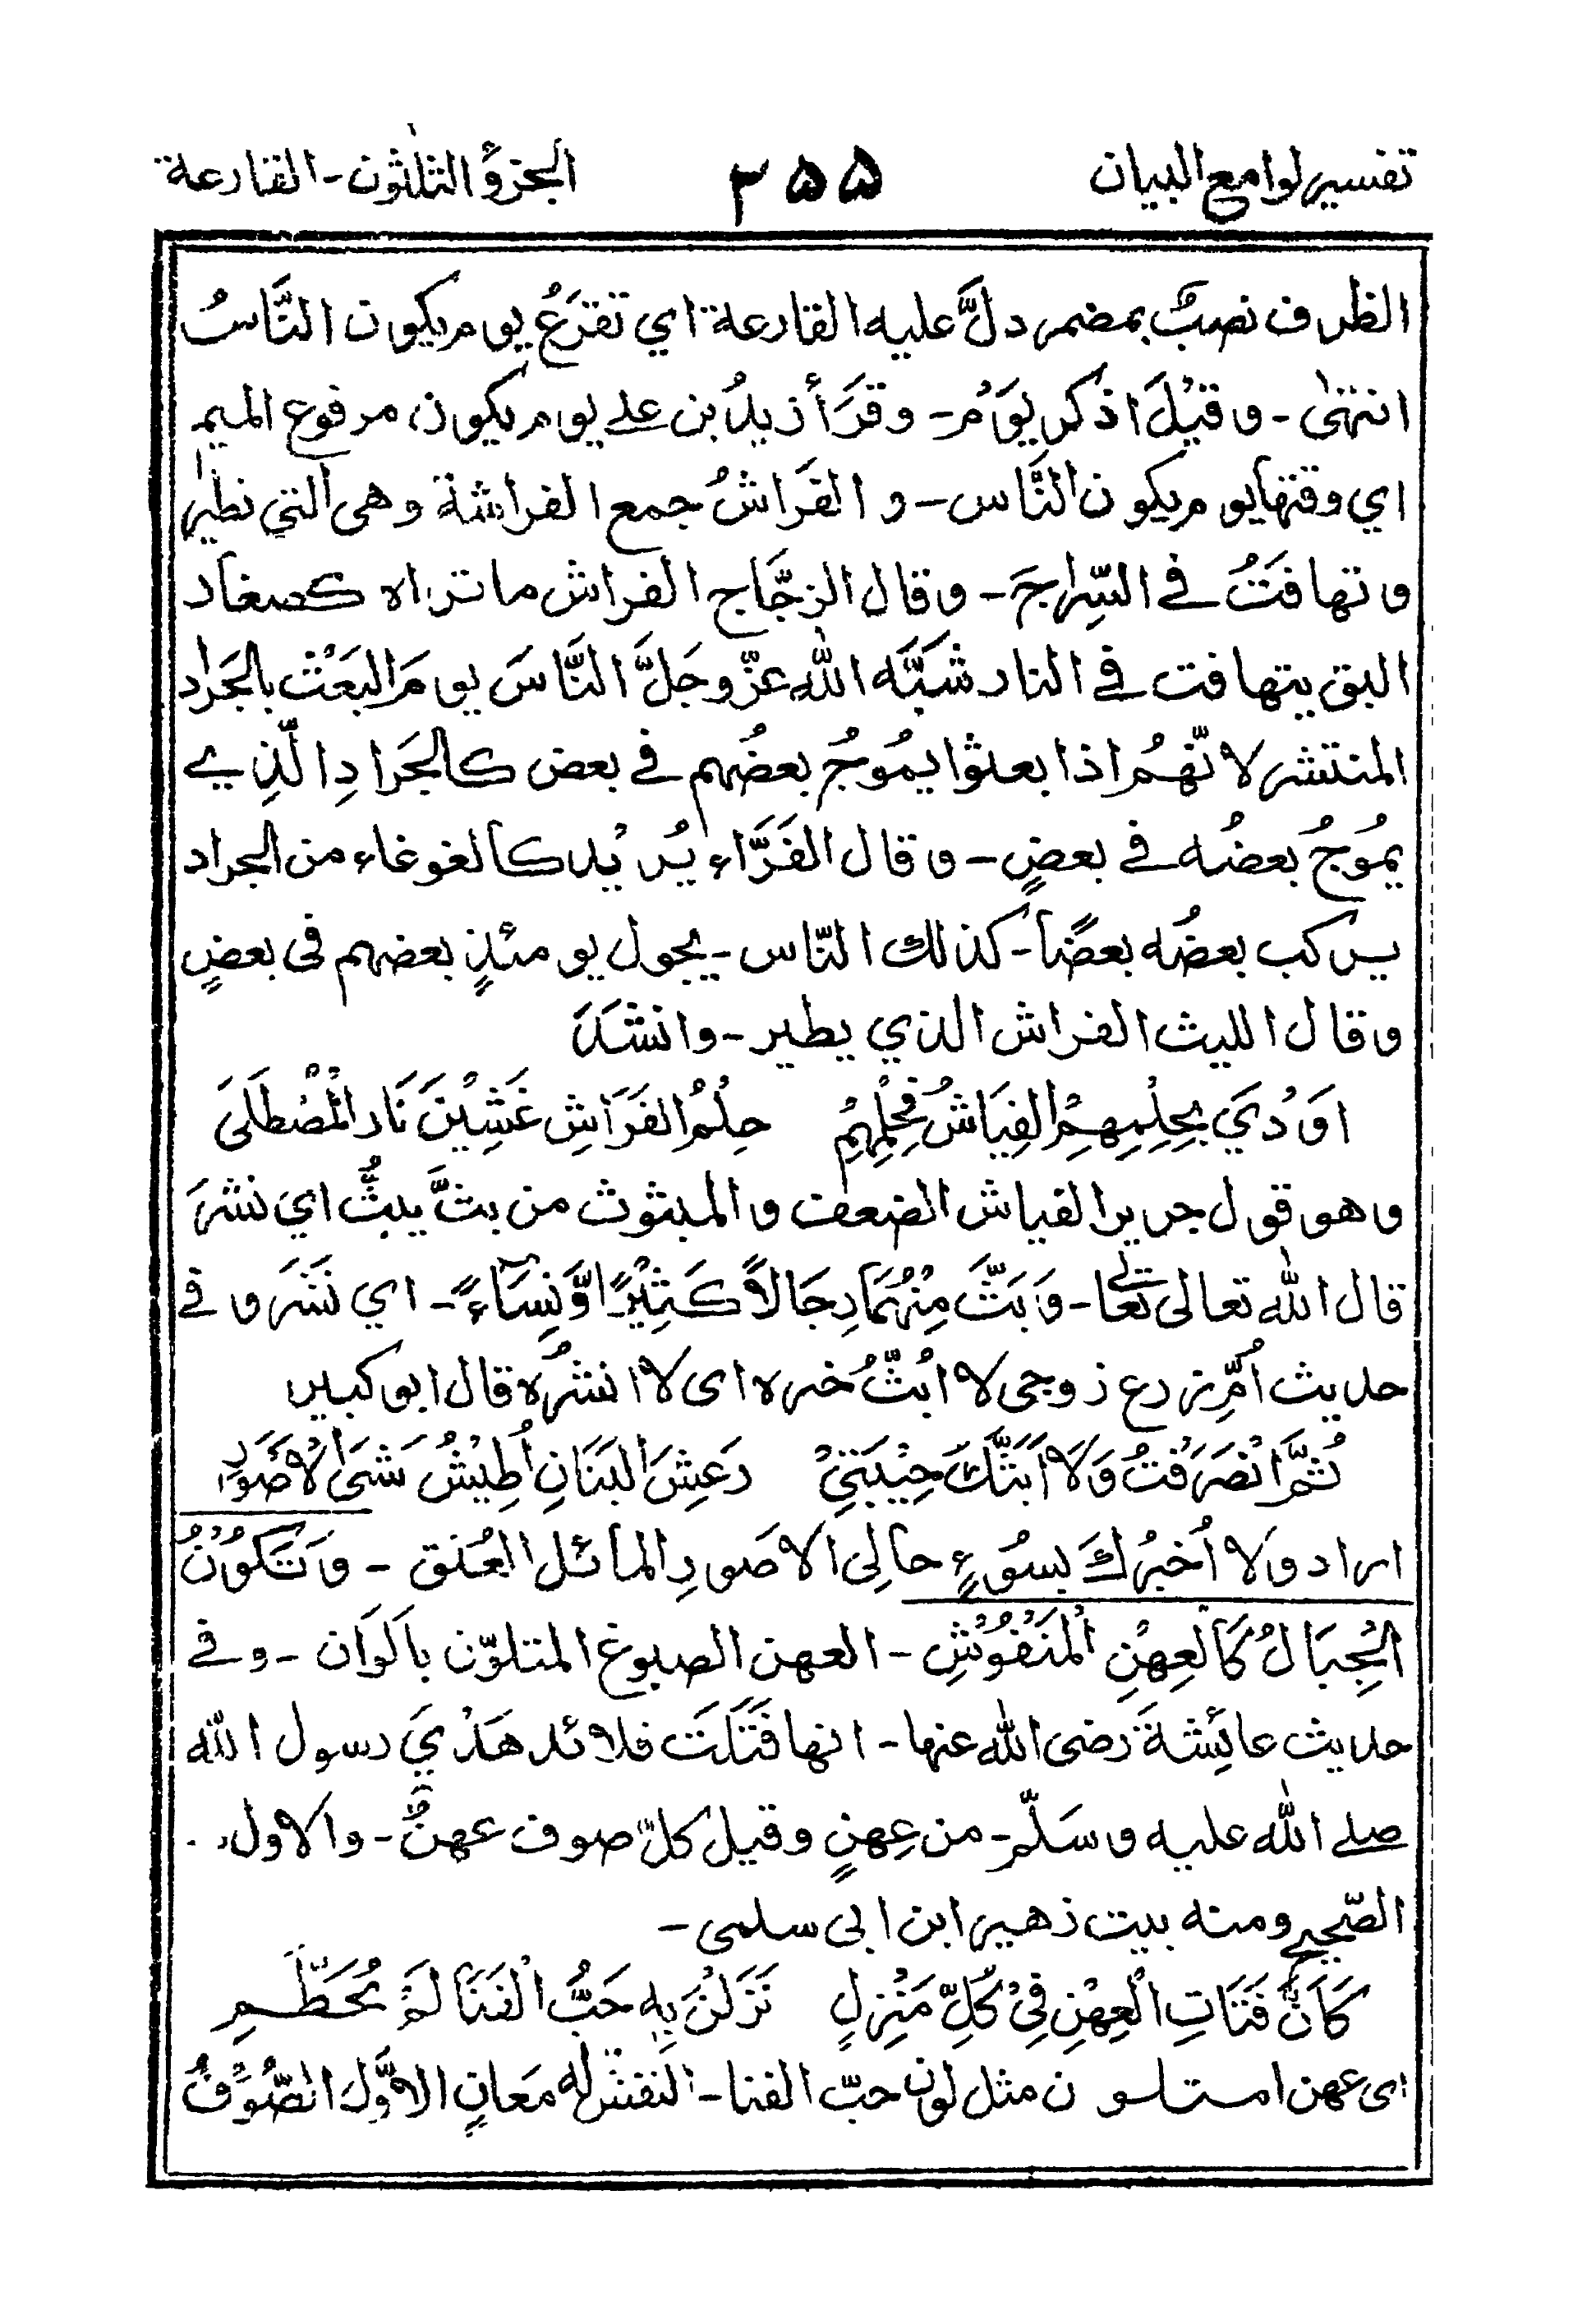 تفسير لوامع البيان ٣٥٥ الجزؤ الثلٰثون - القارعة
الظرف نصبٌ بمضمر دلَّ عليه القارعة اي تقرَعُ يوم يكون النَّاسُ
انتهٰى - وقيْلَ اذكر يَوْمُ - وقَرَأ زيدُ بن علے يوم يكون مرفوع الميم
اي وقتها يوم يكون النَّاس - و الفَرَاشُ جمع الفراشة وهى التي تطير
وتهافَتُ في السِّراجَ - وقال الزجَّاج الفراش ما تراه كصغار
البق يتهافت في النار شبَّه اللّٰه عزّ وجَلَّ النَّاسَ يومَ البَعْث بالجَراد
المنتشر لانّهُم اذا بعثوا يمُوجُ بعضُهم في بعض كالجَرادِ الّذِي
يمُوجُ بعضُه في بعضٍ - وقال الفَرَّاء يُريْد كالغوغاء من الجراد
يركب بعضُه بعضًا - كذلك النّاس - يجول يومئذٍ بعضهم فى بعضٍ
وقال الليث الفراش الذي يطير - وانشَدَ
اَوْدَي بِحِلْمِهِمُ الفِيَاشُ فحِلْمُهُم حِلْمُ الفَرَاشِ غَشِيْنَ نَارَ المُصْطَلَى
وهو قول جرير الفياش الضعف والمبثوث من بثَّ يبثُّ اي نشَرَ
قال اللّٰه تعالى تعالٰے - وَبَثَّ مِنْهُمَا رِجَالاً كَثِيْرًا وَّنِسَاۤءً - اي نَشَرَ و في
حديث اُمِّ زرع زوجى لا ابُثُّ خبره اى لا انشُره قال ابو كبير
ثُمَّ انْصَرَفْتُ وَلَا اَبَثُّكَ حِيْبَتِيْ رَعِشَ البَنَانِ اُطِيْشُ مَشْىَ الاَصْوَرِ
اراد ولا اُخبرُك بسُوءٍ حالِى الاصَورِ المائل العُنق - وَتَكُوْنُ
الجِبَالُ كَالعِهْنِ المَنْفُوْشِ - العهن الصبوغ المتلوّن بالوَان - وفي
حديث عائِشةَ رضى اللّٰه عنها - انها فَتَلَت قلائد هَدْيَ رسول اللّٰه
صلے اللّٰه عليه وسَلّم - من عِهنٍ وقيل كلّ صوف عهنٌ - والاول
الصّحيح ومنه بيت زهير ابن ابى سلمى -
كَاَنَّ فَتَاتِ الْعِهْنِ فِيْ كُلِّ مَنْزِلٍ نَزَلْنَ بِهٖ حَبُّ الْفَنَا لَمْ يُحَطَّمِ
اى عهن متلون مثل لون حبّ الفنا - النفش له مَعانٍ الاوَّل الصُّوفُ